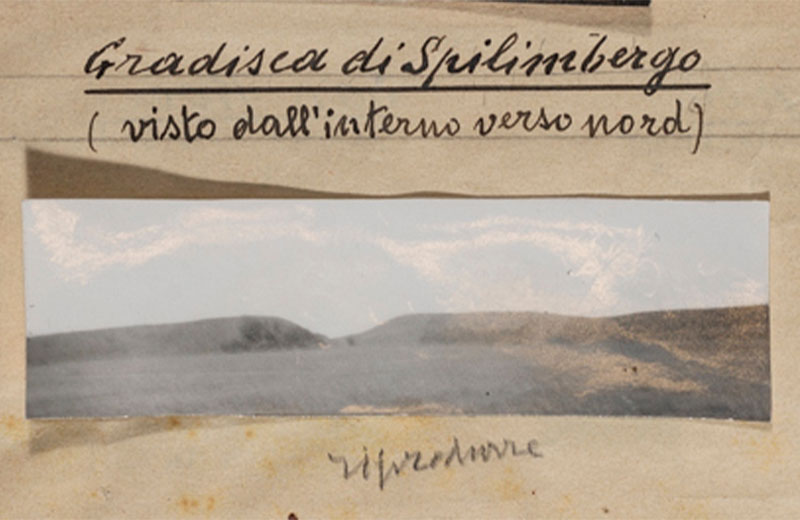 Gradisca di Spilimbergo
( visto dall'interno verso nord)
riprodurre